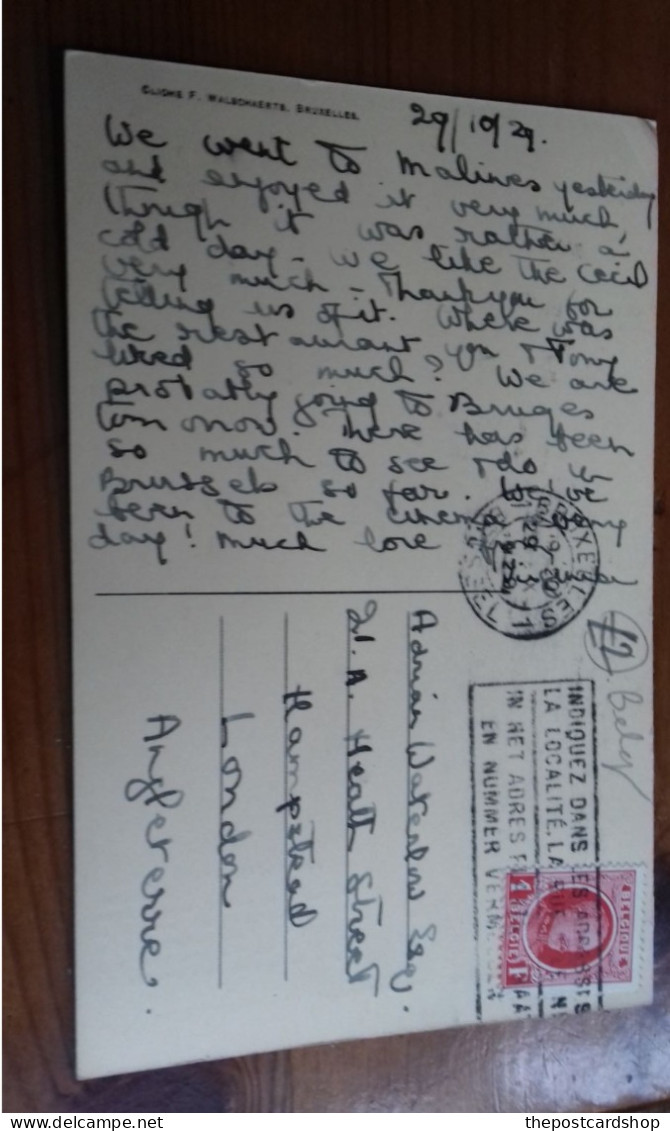 CLICHE F. WALSCHAERTS, BRUXELLES.
29/10/29.
We went to Malines yesterday
and enjoyed it very much,
though it was rather a
cold day. We like the Cecil
very much - Thank you for
telling us of it. Where was
the restaurant you & Tony
liked so much? We are
not going to Bruges
now. There has been
so much to see & do in
Brussels so far.
been to the
day! Much love
BRUXELLES
BRUSSEL
Adrian Waterlow Esq.
21. A. Heath Street
Hampstead
London
Angleterre.
INDIQUEZ DANS LES ADRESSES
LA LOCALITÉ, LA RUE
IN HET ADRES
EN NUMMER
BELGIQUE
BELGIE
1 F
thepostcardshop